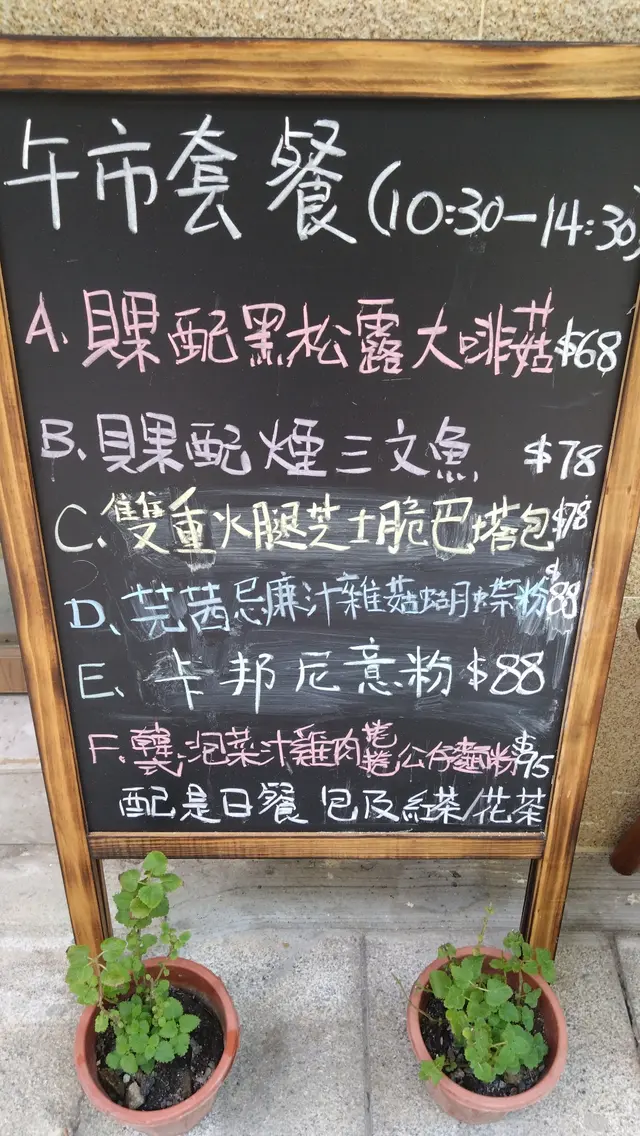 午市套餐(10:30-14:30)
A. 貝果配黑松露大啡菇 $68
B. 貝果配煙三文魚 $78
C. 雙重火腿芝士脆巴塔包 $78
D. 芫茜忌廉汁雜菇蝴蝶粉 $88
E. 卡邦尼意粉 $88
F. 韓式泡菜汁雞肉捲捲公仔麵粉 $95
配是日餐包及紅茶/花茶